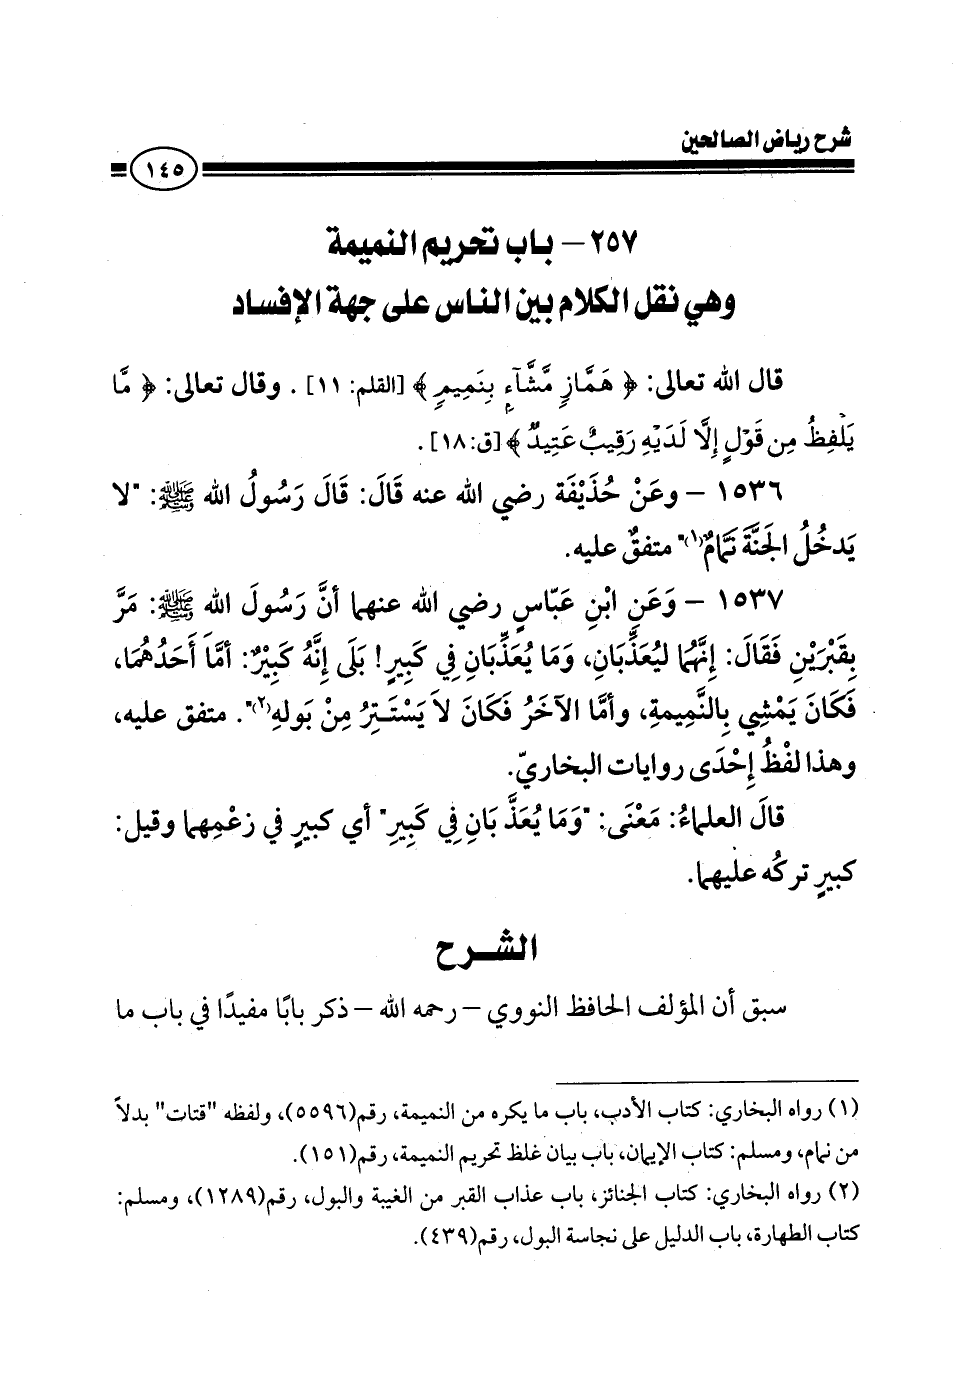 شرح رياض الصالحين
١٤٥
٢٥٧ – باب تحريم النميمة
وهي نقل الكلام بين الناس على جهة الإفساد
قال الله تعالى: ﴿ هَمَّازٍ مَّشَّآءٍ بِنَمِيمٍ ﴾ [القلم: ١١] . وقال تعالى: ﴿ مَّا
يَلْفِظُ مِن قَوْلٍ إِلَّا لَدَيْهِ رَقِيبٌ عَتِيدٌ ﴾ [ق: ١٨] .
١٥٣٦ – وعَنْ حُذَيْفَة رضي الله عنه قَالَ: قَالَ رَسُولُ الله ﷺ: "لا
يَدخُلُ الجَنَّةَ نَمَّامٌ(١)" متفقٌ عليه.
١٥٣٧ – وَعَنِ ابْنِ عَبّاسٍ رضي الله عنهما أنَّ رَسُولَ الله ﷺ: مَرَّ
بِقَبْرَيْنِ فَقَالَ: إِنَّهُما ليُعَذَّبَانِ، وَمَا يُعَذَّبَانِ فِي كَبِيرٍ! بَلَى إِنَّهُ كَبِيْرٌ: أمَّا أَحَدُهُمَا،
فَكَانَ يَمْشِي بِالنَّمِيمةِ، وأمَّا الآخَرُ فَكَانَ لاَ يَسْتَـتِرُ مِنْ بَولهِ(٢)". متفق عليه،
وهذا لفْظُ إِحْدَى روايات البخاريّ.
قالَ العلماءُ: مَعْنَى: "وَمَا يُعَذَّبَانِ فِي كَبِيرِ" أي كبيرٍ في زعْمِهما وقيل:
كبيرٍ تركُه عليهما.
الشـرح
سبق أن المؤلف الحافظ النووي – رحمه الله – ذكر بابًا مفيدًا في باب ما
(١) رواه البخاري: كتاب الأدب، باب ما يكره من النميمة، رقم(٥٥٩٦)، ولفظه "قتات" بدلاً
من نمام، ومسلم: كتاب الإيمان، باب بيان غلظ تحريم النميمة، رقم(١٥١).
(٢) رواه البخاري: كتاب الجنائز، باب عذاب القبر من الغيبة والبول، رقم(١٢٨٩)، ومسلم:
كتاب الطهارة، باب الدليل على نجاسة البول، رقم(٤٣٩).